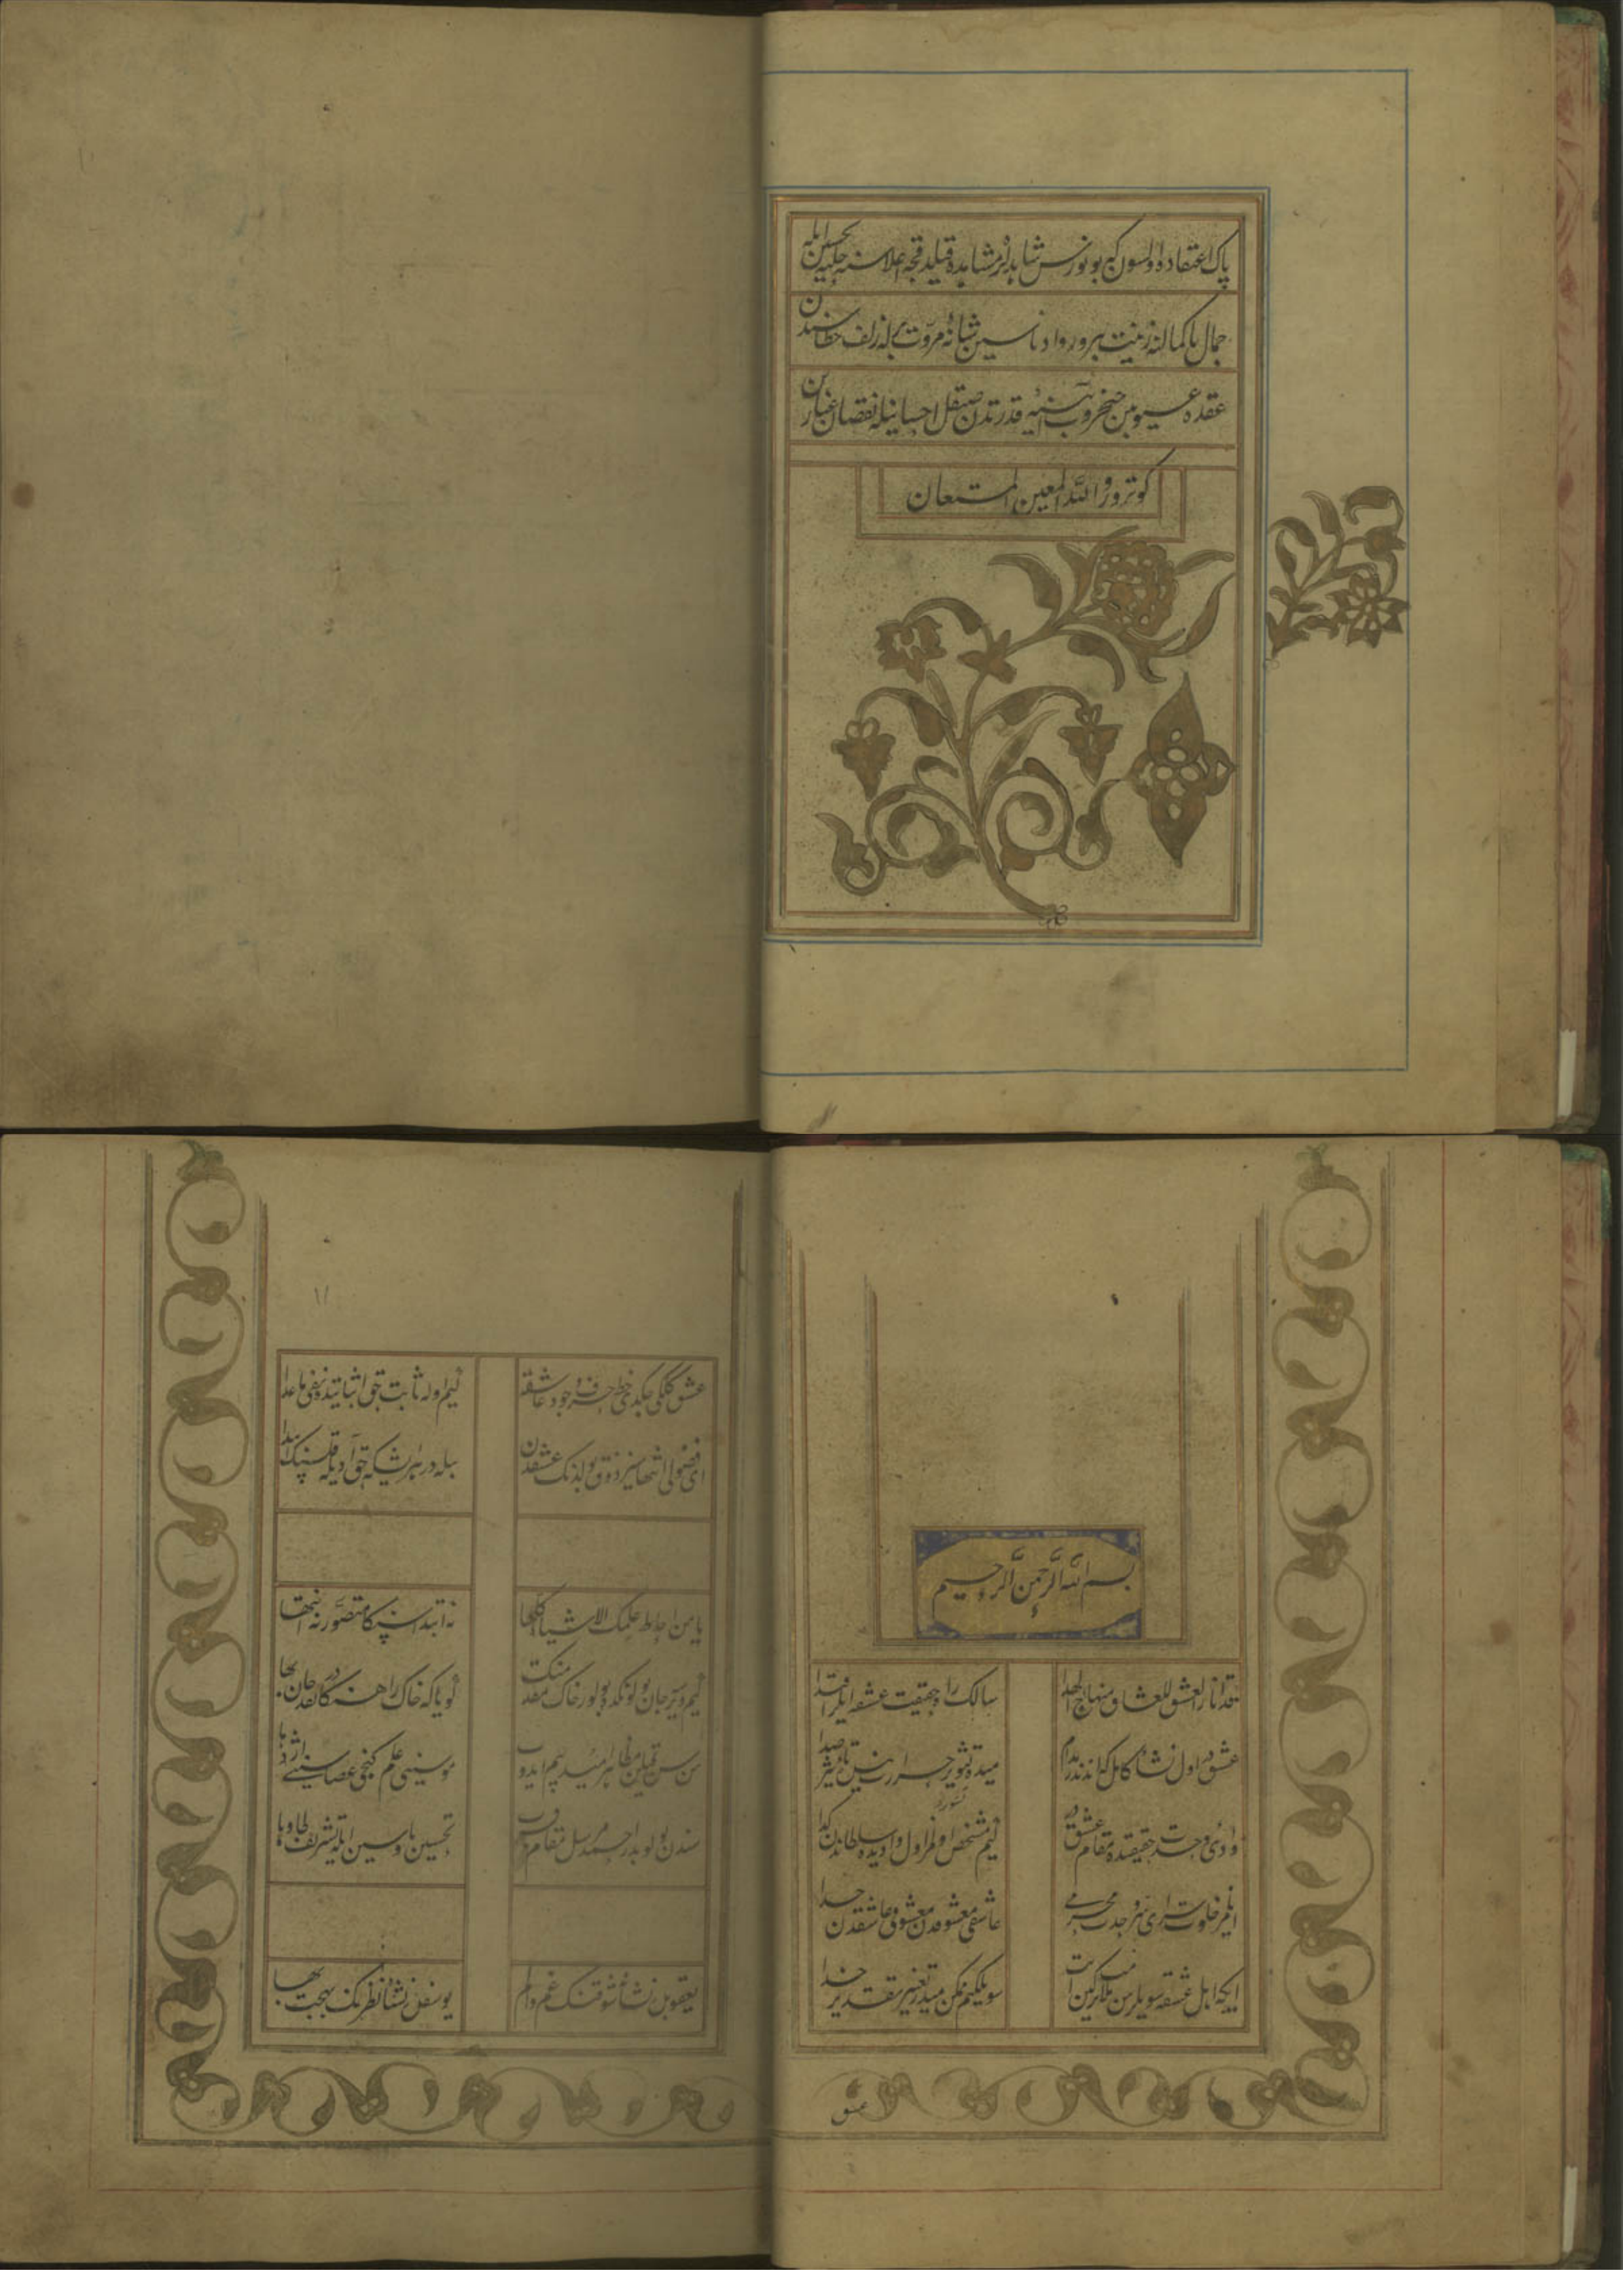 پاک اعتقاده اولسون که بو نورس شاهدلر مشاهده قیلدقجه اعلا سنه حلیهٔ تحسین ایله
جمال با کمالنه زینت ویرور و ادناسین شانهٔ مروت بله زلف خطاسندن
عقده عیوبین چیخروب آینهٔ قدرتدن صیقل احسانیله نقصان غبارین
کوتورور والله المعین المستعان
بسم الله الرحمن الرحیم
قد انار العشق للعشاق منهاج الهدا
سالک راه حقیقت عشقه ایلر اقتدا
عشقدر اول نشأهٔ کامل کیم اندندر مدام
میده تشویر حرارت نیده تأثیر صدا
وادی وحدت حقیقتده مقام عشقدر
کیم مشخص اولمز اول وادیده سلطاندن کدا
ایلمز خلوت سرای سر وحدت محرمی
عاشقی معشوقدن معشوق عاشقدن جدا
ایکه اهل عشقه سویلرسن ملامت ترکین ایت
سویله کیم ممکن میدر تغییر تقدیر خدا
عشق
۱۱
عشق کلکی چکدی خط حرف وجود عاشقه
کیم اوله ثابت حق اثباتنده نفی ماعدا
ای فضولی انتهاسیز ذوق بولدنک عشقدن
بیله در هر ایش که حق آدیله قلسنک ابتدا
یا من احاط علمک الاشیاء کلها
نه ابتدا سنکا متصور نه انتها
کیم ویرسه جان یولونکده بولور خاک مقدمنک
کویا که خاک راهنکادر نقد جان بها
موسینی علم کنجی عصاسینی اژدها
سندن بولوبدر احمد مرسل مقام قرب
تحسین یاوسین ایله تشریف طا و ها
یعقوبه نشأهٔ شوقنک غم و الم
یوسفدن نشأهٔ نظرنک بهجت بها